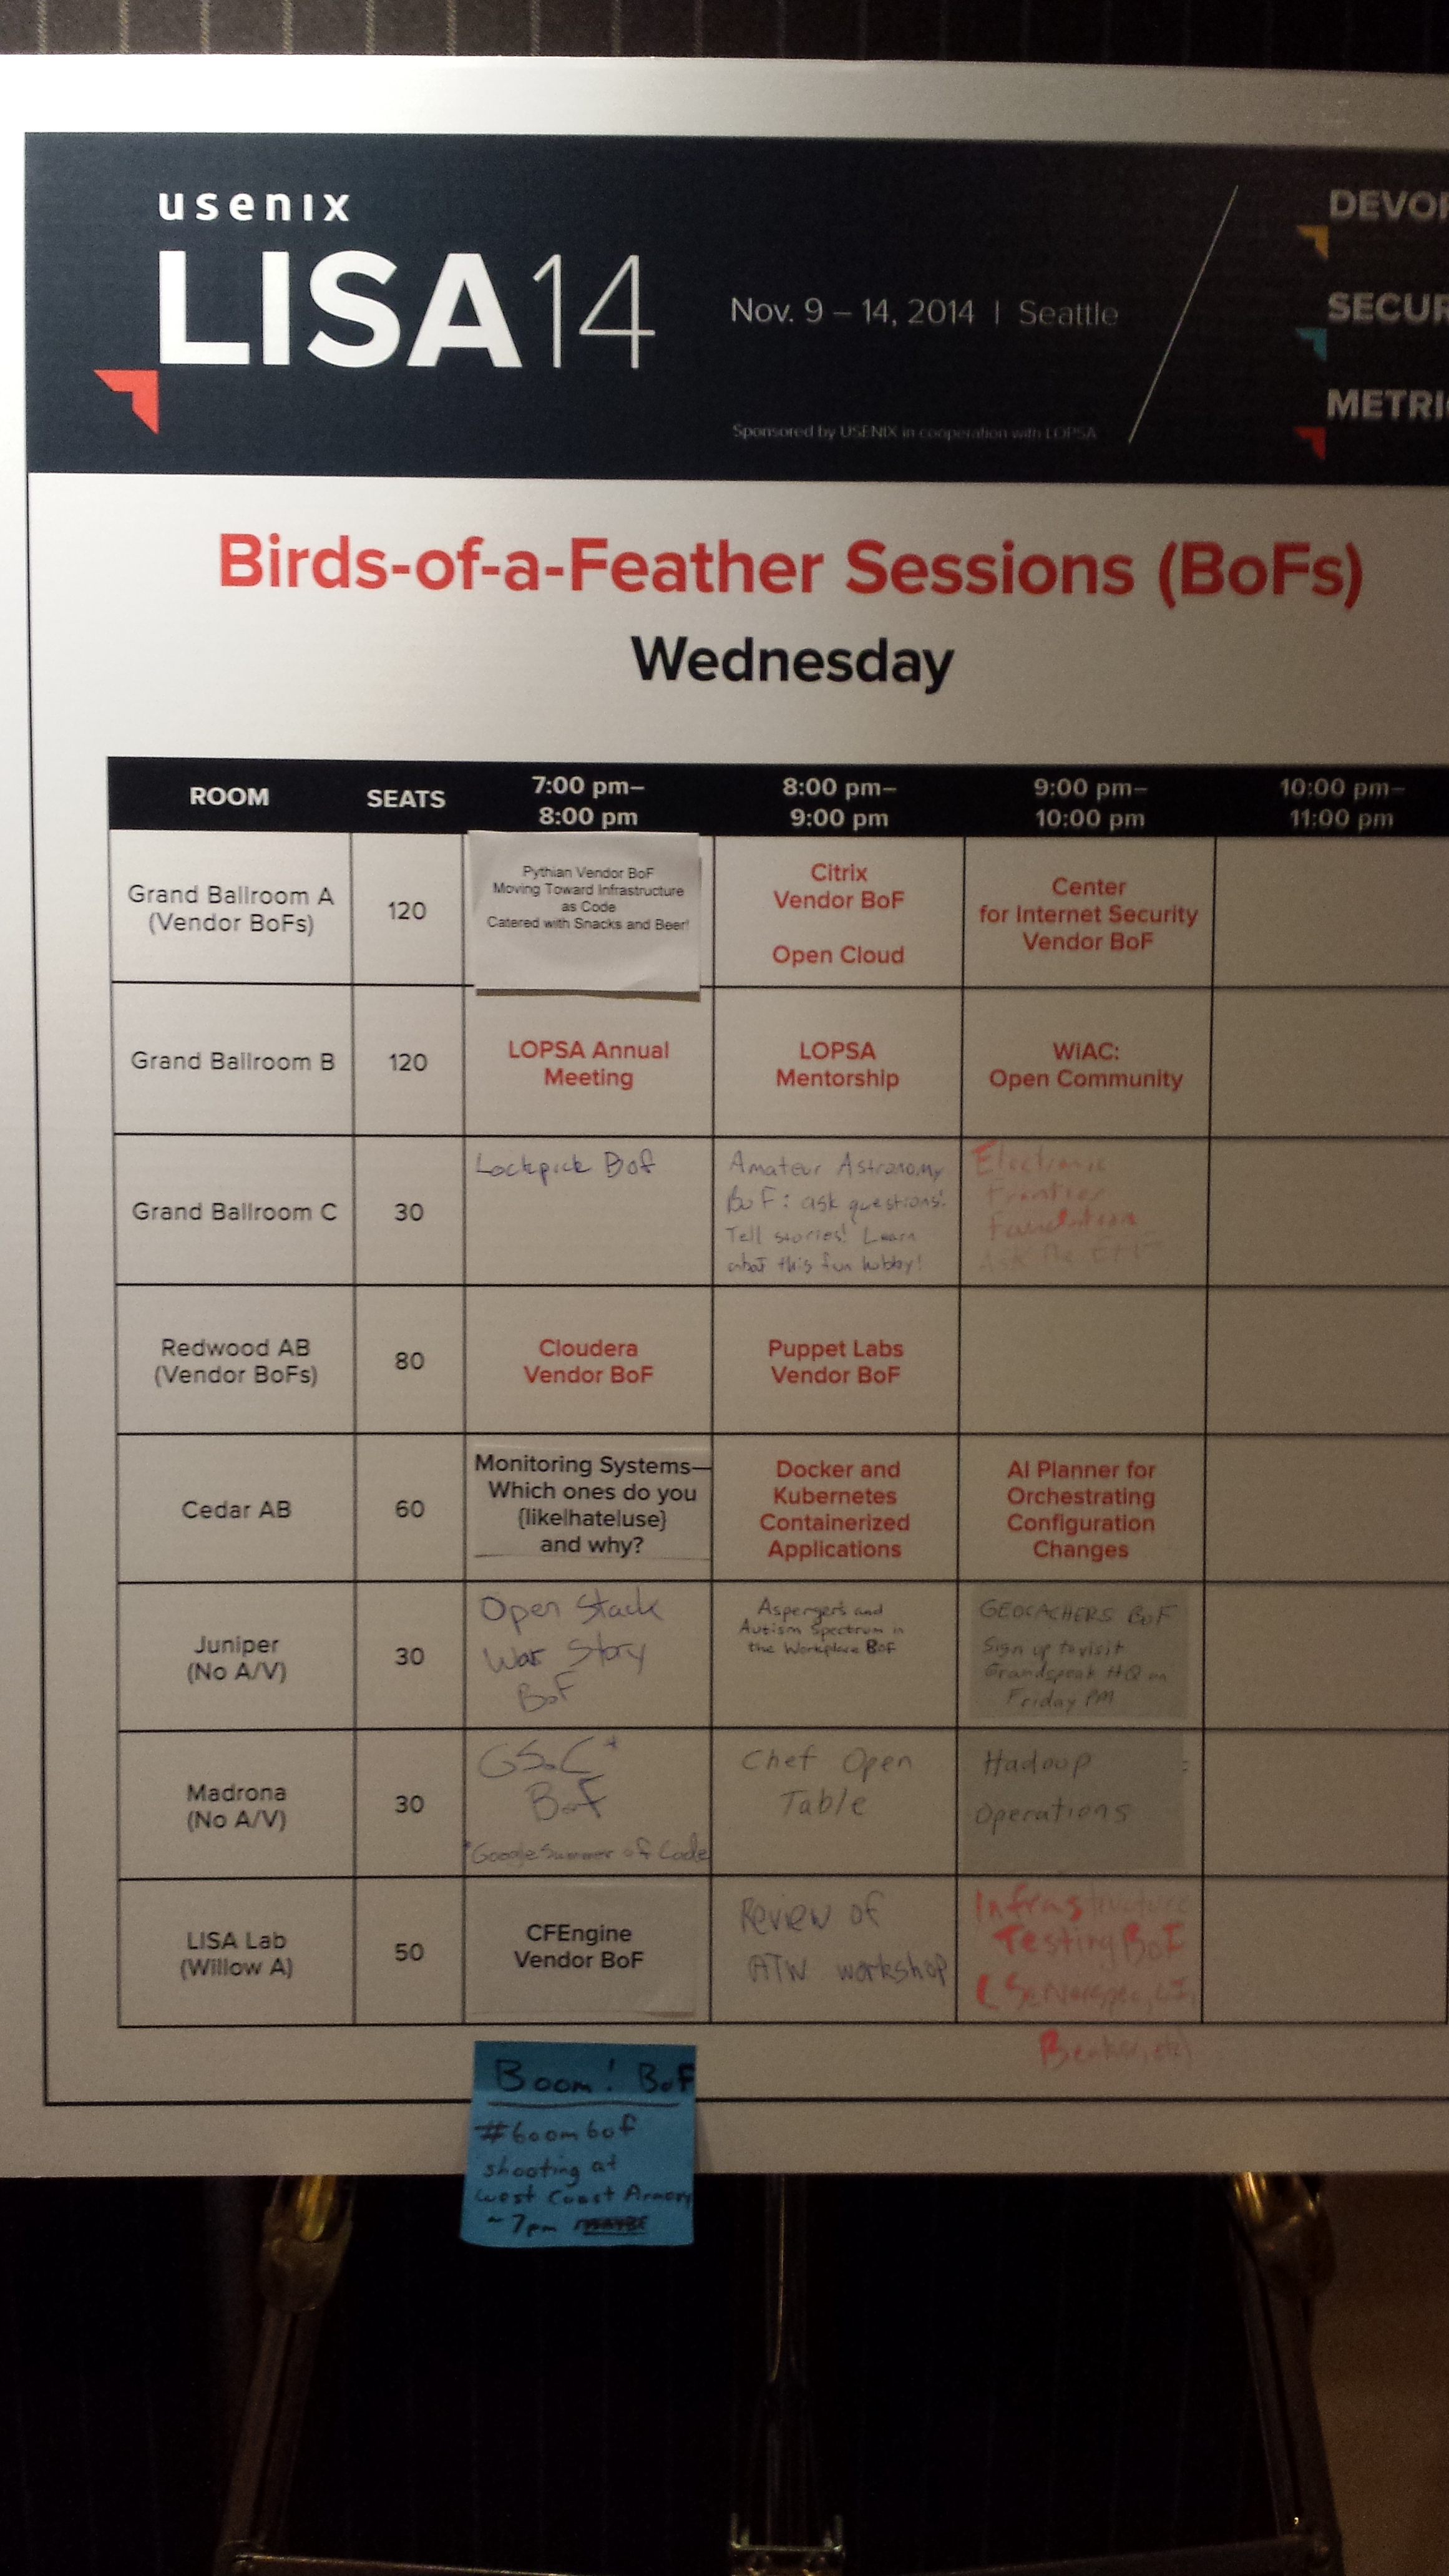 usenix
LISA14
Nov. 9 – 14, 2014 | Seattle
Sponsored by USENIX in cooperation with LOPSA
DEVO
SECUR
METRI
Birds-of-a-Feather Sessions (BoFs)
Wednesday
ROOM
SEATS
7:00 pm–
8:00 pm
8:00 pm–
9:00 pm
9:00 pm–
10:00 pm
10:00 pm–
11:00 pm
Grand Ballroom A
(Vendor BoFs)
120
Pythian Vendor BoF
Moving Toward Infrastructure
as Code
Catered with Snacks and Beer!
Citrix
Vendor BoF
Open Cloud
Center
for Internet Security
Vendor BoF
Grand Ballroom B
120
LOPSA Annual
Meeting
LOPSA
Mentorship
WiAC:
Open Community
Grand Ballroom C
30
Lockpick BoF
Amateur Astronomy
BoF: ask questions!
Tell stories! Learn
about this fun hobby!
Electronic
Frontier
Foundation
Ask the EFF
Redwood AB
(Vendor BoFs)
80
Cloudera
Vendor BoF
Puppet Labs
Vendor BoF
Cedar AB
60
Monitoring Systems—
Which ones do you
{like|hate|use}
and why?
Docker and
Kubernetes
Containerized
Applications
AI Planner for
Orchestrating
Configuration
Changes
Juniper
(No A/V)
30
Open Stack
War Story
BoF
Aspergers and
Autism Spectrum in
the Workplace BoF
GEOCACHERS BoF
Sign up to visit
Groundspeak HQ on
Friday PM
Madrona
(No A/V)
30
GSoC*
BoF
*Google Summer of Code
Chef Open
Table
Hadoop
Operations
LISA Lab
(Willow A)
50
CFEngine
Vendor BoF
Review of
ATW workshop
Infrastructure
Testing BoF
(Serverspec, CI,
Beaker, etc)
Boom! BoF
#boombof
shooting at
West Coast Armory
~7pm